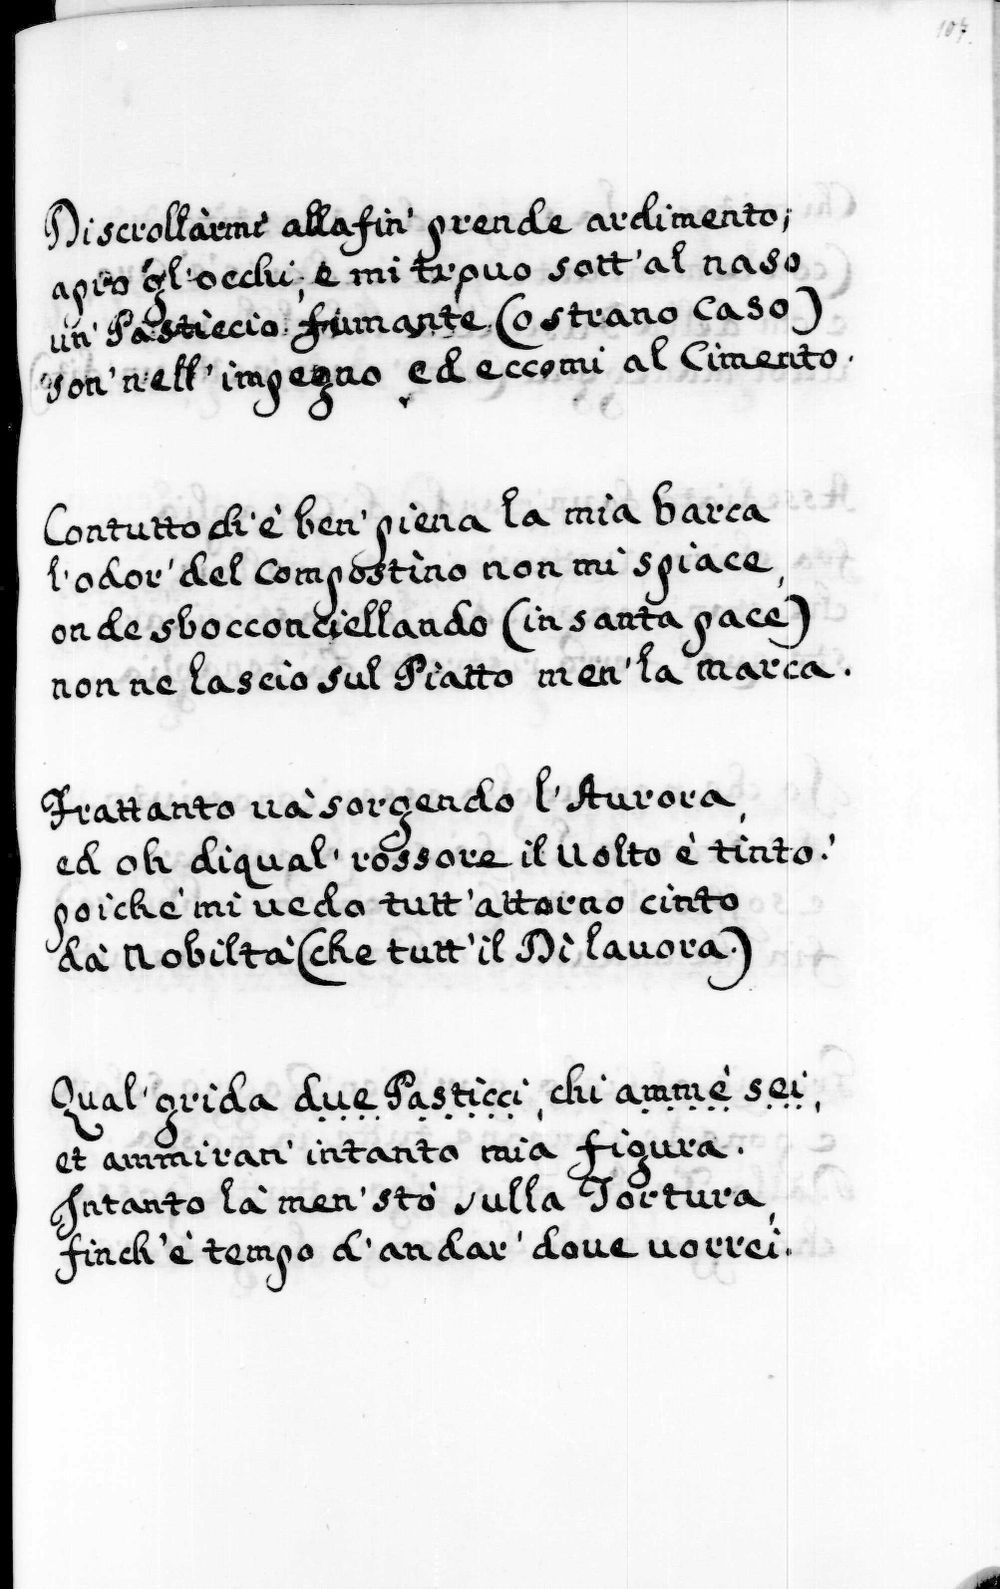 107.
Di scrollarmi allafin' prende ardimento;
apro gl'occhi, e mi trovo sott'al naso
un' Pasticcio fumante (o strano Caso)
son' nell' impegno ed eccomi al Cimento.
Contutto di'è ben' piena la mia barca
l'odor' del Compostino non mi spiace,
onde sbocconciellando (in santa pace)
non ne lascio sul Piatto men' la marca.
Frattanto uà sorgendo l'Aurora,
ed oh diqual' rossore il Uolto è tinto!
poiche mi uedo tutt'attorno cinto
dà Nobiltà (che tutt'il Dì lauora.)
Qual' grida due Pasticci, chi ammè sei,
et ammiran' intanto mia figura.
Intanto là men' stò sulla Tortura,
finch'è tempo d'andar' doue uorrei.